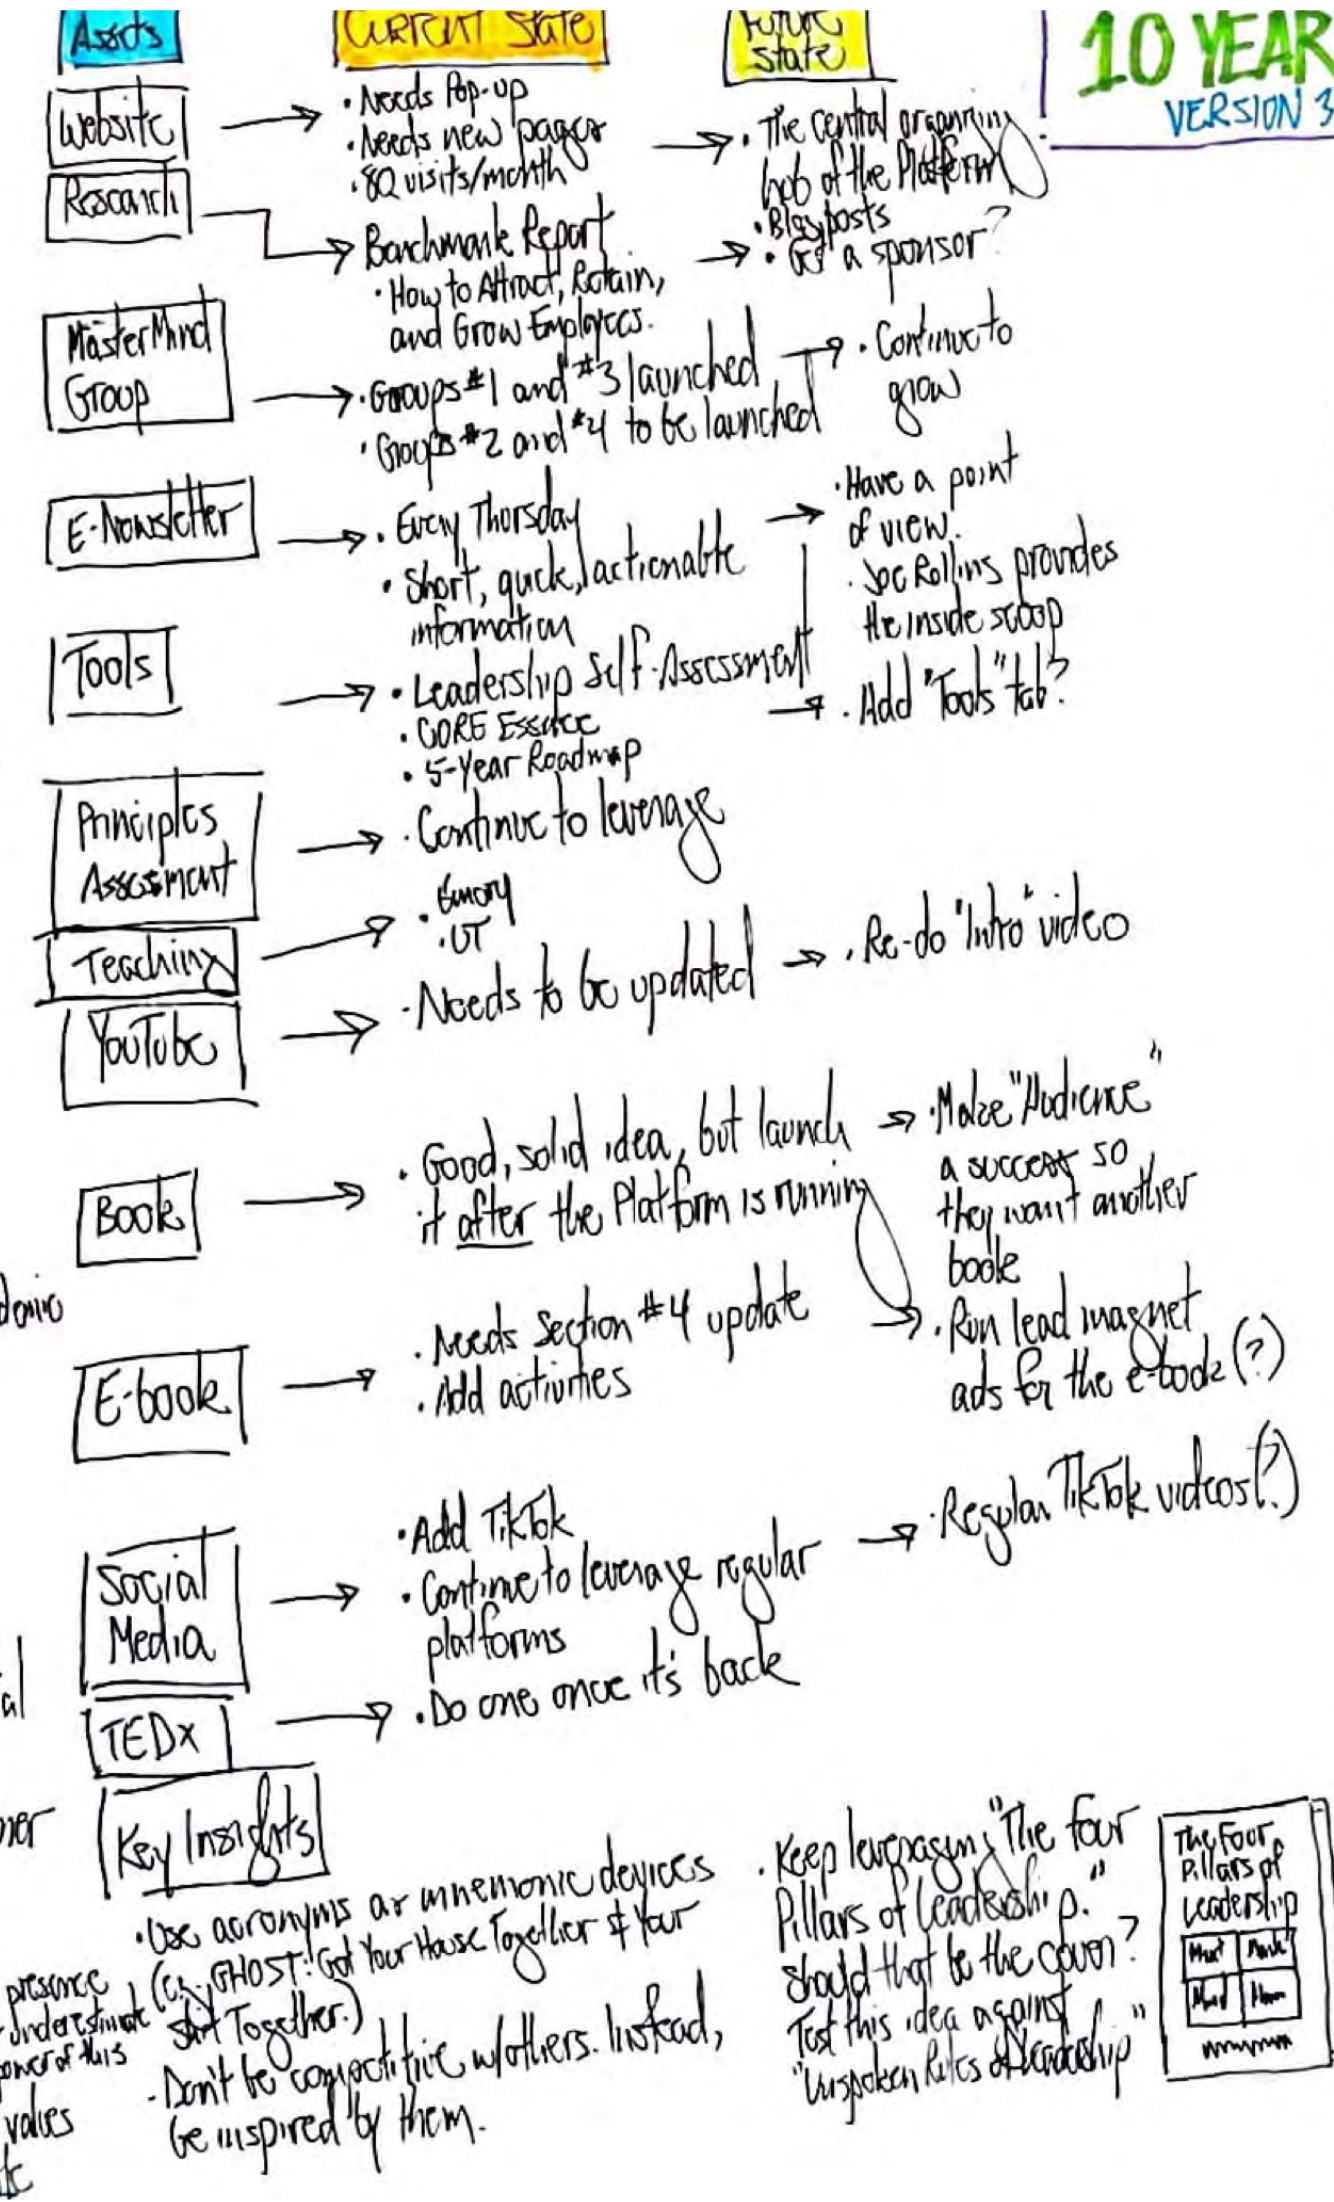 Assets
Current State
Future
State
10 YEAR
VERSION 3
Website
• Needs Pop-up
• Needs new pages
• 80 visits/month
• The central organizing
hub of the Platform
• Blog posts
Research
Benchmark Report
• How to Attract, Retain,
and Grow Employees.
• Get a sponsor?
MasterMind
Group
• Groups #1 and #3 launched
• Groups #2 and #4 to be launched
• Continue to
grow
E-Newsletter
• Every Thursday
• Short, quick, actionable
information
• Have a point
of view.
• Joe Rollins provides
the inside scoop
Tools
• Leadership Self-Assessment
• CORE Essence
• 5-Year Roadmap
• Add "Tools" tab?
Principles
Assessment
• Continue to leverage
Teaching
• Emory
• UT
YouTube
• Needs to be updated
• Re-do "Intro" video
Book
• Good, solid idea, but launch
it after the Platform is running
• Make "Audience"
a success so
they want another
book
E-book
• Needs Section #4 update
• Add activities
• Run lead magnet
ads for the e-book (?)
Social
Media
• Add TikTok
• Continue to leverage regular
platforms
• Regular TikTok videos (?)
TEDx
• Do one once it's back
Key Insights
• Use acronyms or mnemonic devices
(e.g., GHOST: Get Your House Together & Your
Shit Together.)
- Don't be competitive w/others. Instead,
be inspired by them.
• Keep leveraging "The Four
Pillars of Leadership."
Should that be the cover?
Test this idea against
"Unspoken Rules of Leadership"
The Four
Pillars of
Leadership
presence
underestimate
power of this
values